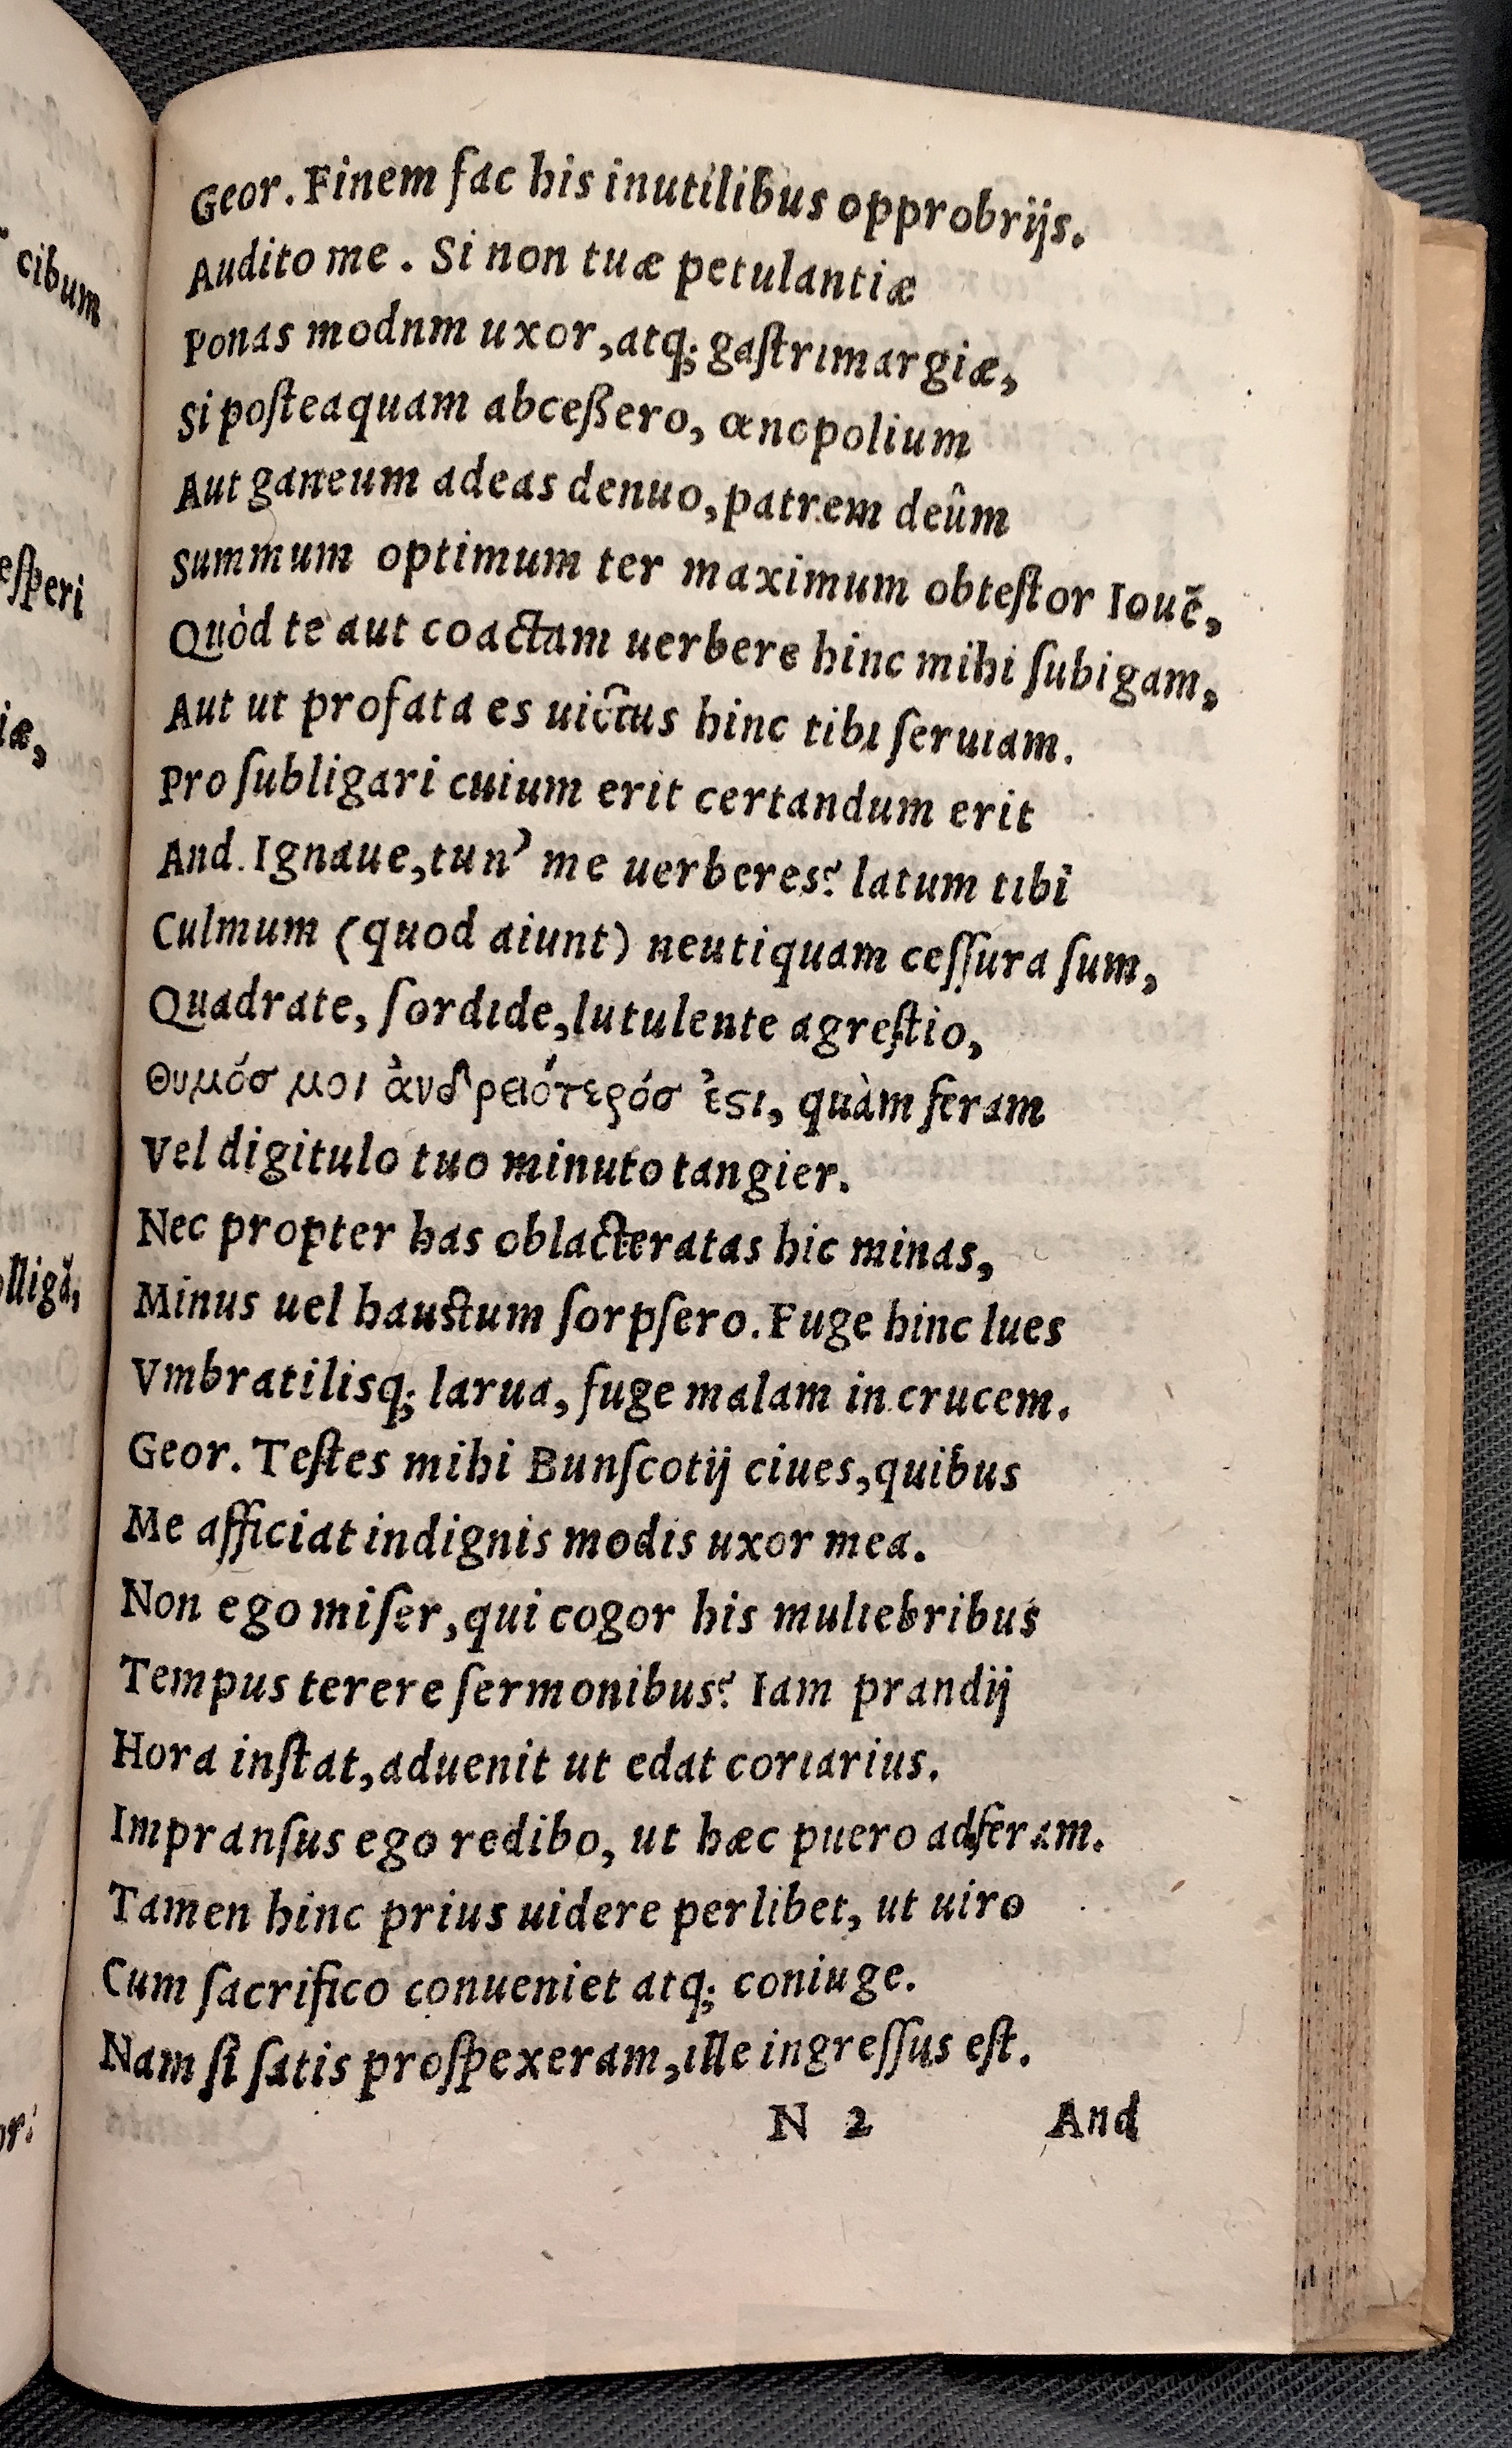 cibum
eſperi
iæ,
lligã,
Geor. Finem fac his inutilibus opprobrijs.
Audito me. Si non tuæ petulantiæ
Ponas modnm uxor, atq; gaſtrimargiæ,
Si poſteaquam abceßero, œnopolium
Aut ganeum adeas denuo, patrem deûm
Summum optimum ter maximum obteſtor Iouẽ,
Quòd te aut coactam uerbere hinc mihi ſubigam,
Aut ut profata es uictus hinc tibi ſeruiam.
Pro ſubligari cuium erit certandum erit
And. Ignaue, tun' me uerberes? latum tibi
Culmum (quod aiunt) neutiquam ceſſura ſum,
Quadrate, ſordide, lutulente agreſtio,
Θυμόσ μοι ἀνδρειότερόσ ἐϛι, quàm feram
Vel digitulo tuo minuto tangier.
Nec propter has oblacteratas hic minas,
Minus uel hauſtum ſorpſero. Fuge hinc lues
Vmbratilisq; larua, fuge malam in crucem.
Geor. Teſtes mihi Bunſcotij ciues, quibus
Me afficiat indignis modis uxor mea.
Non ego miſer, qui cogor his muliebribus
Tempus terere ſermonibus? Iam prandij
Hora inſtat, aduenit ut edat coriarius.
Impranſus ego redibo, ut hæc puero adferam.
Tamen hinc prius uidere perlibet, ut uiro
Cum ſacrifico conueniet atq; coniuge.
Nam ſi ſatis proſpexeram, ille ingreſſus eſt.
N 2 And